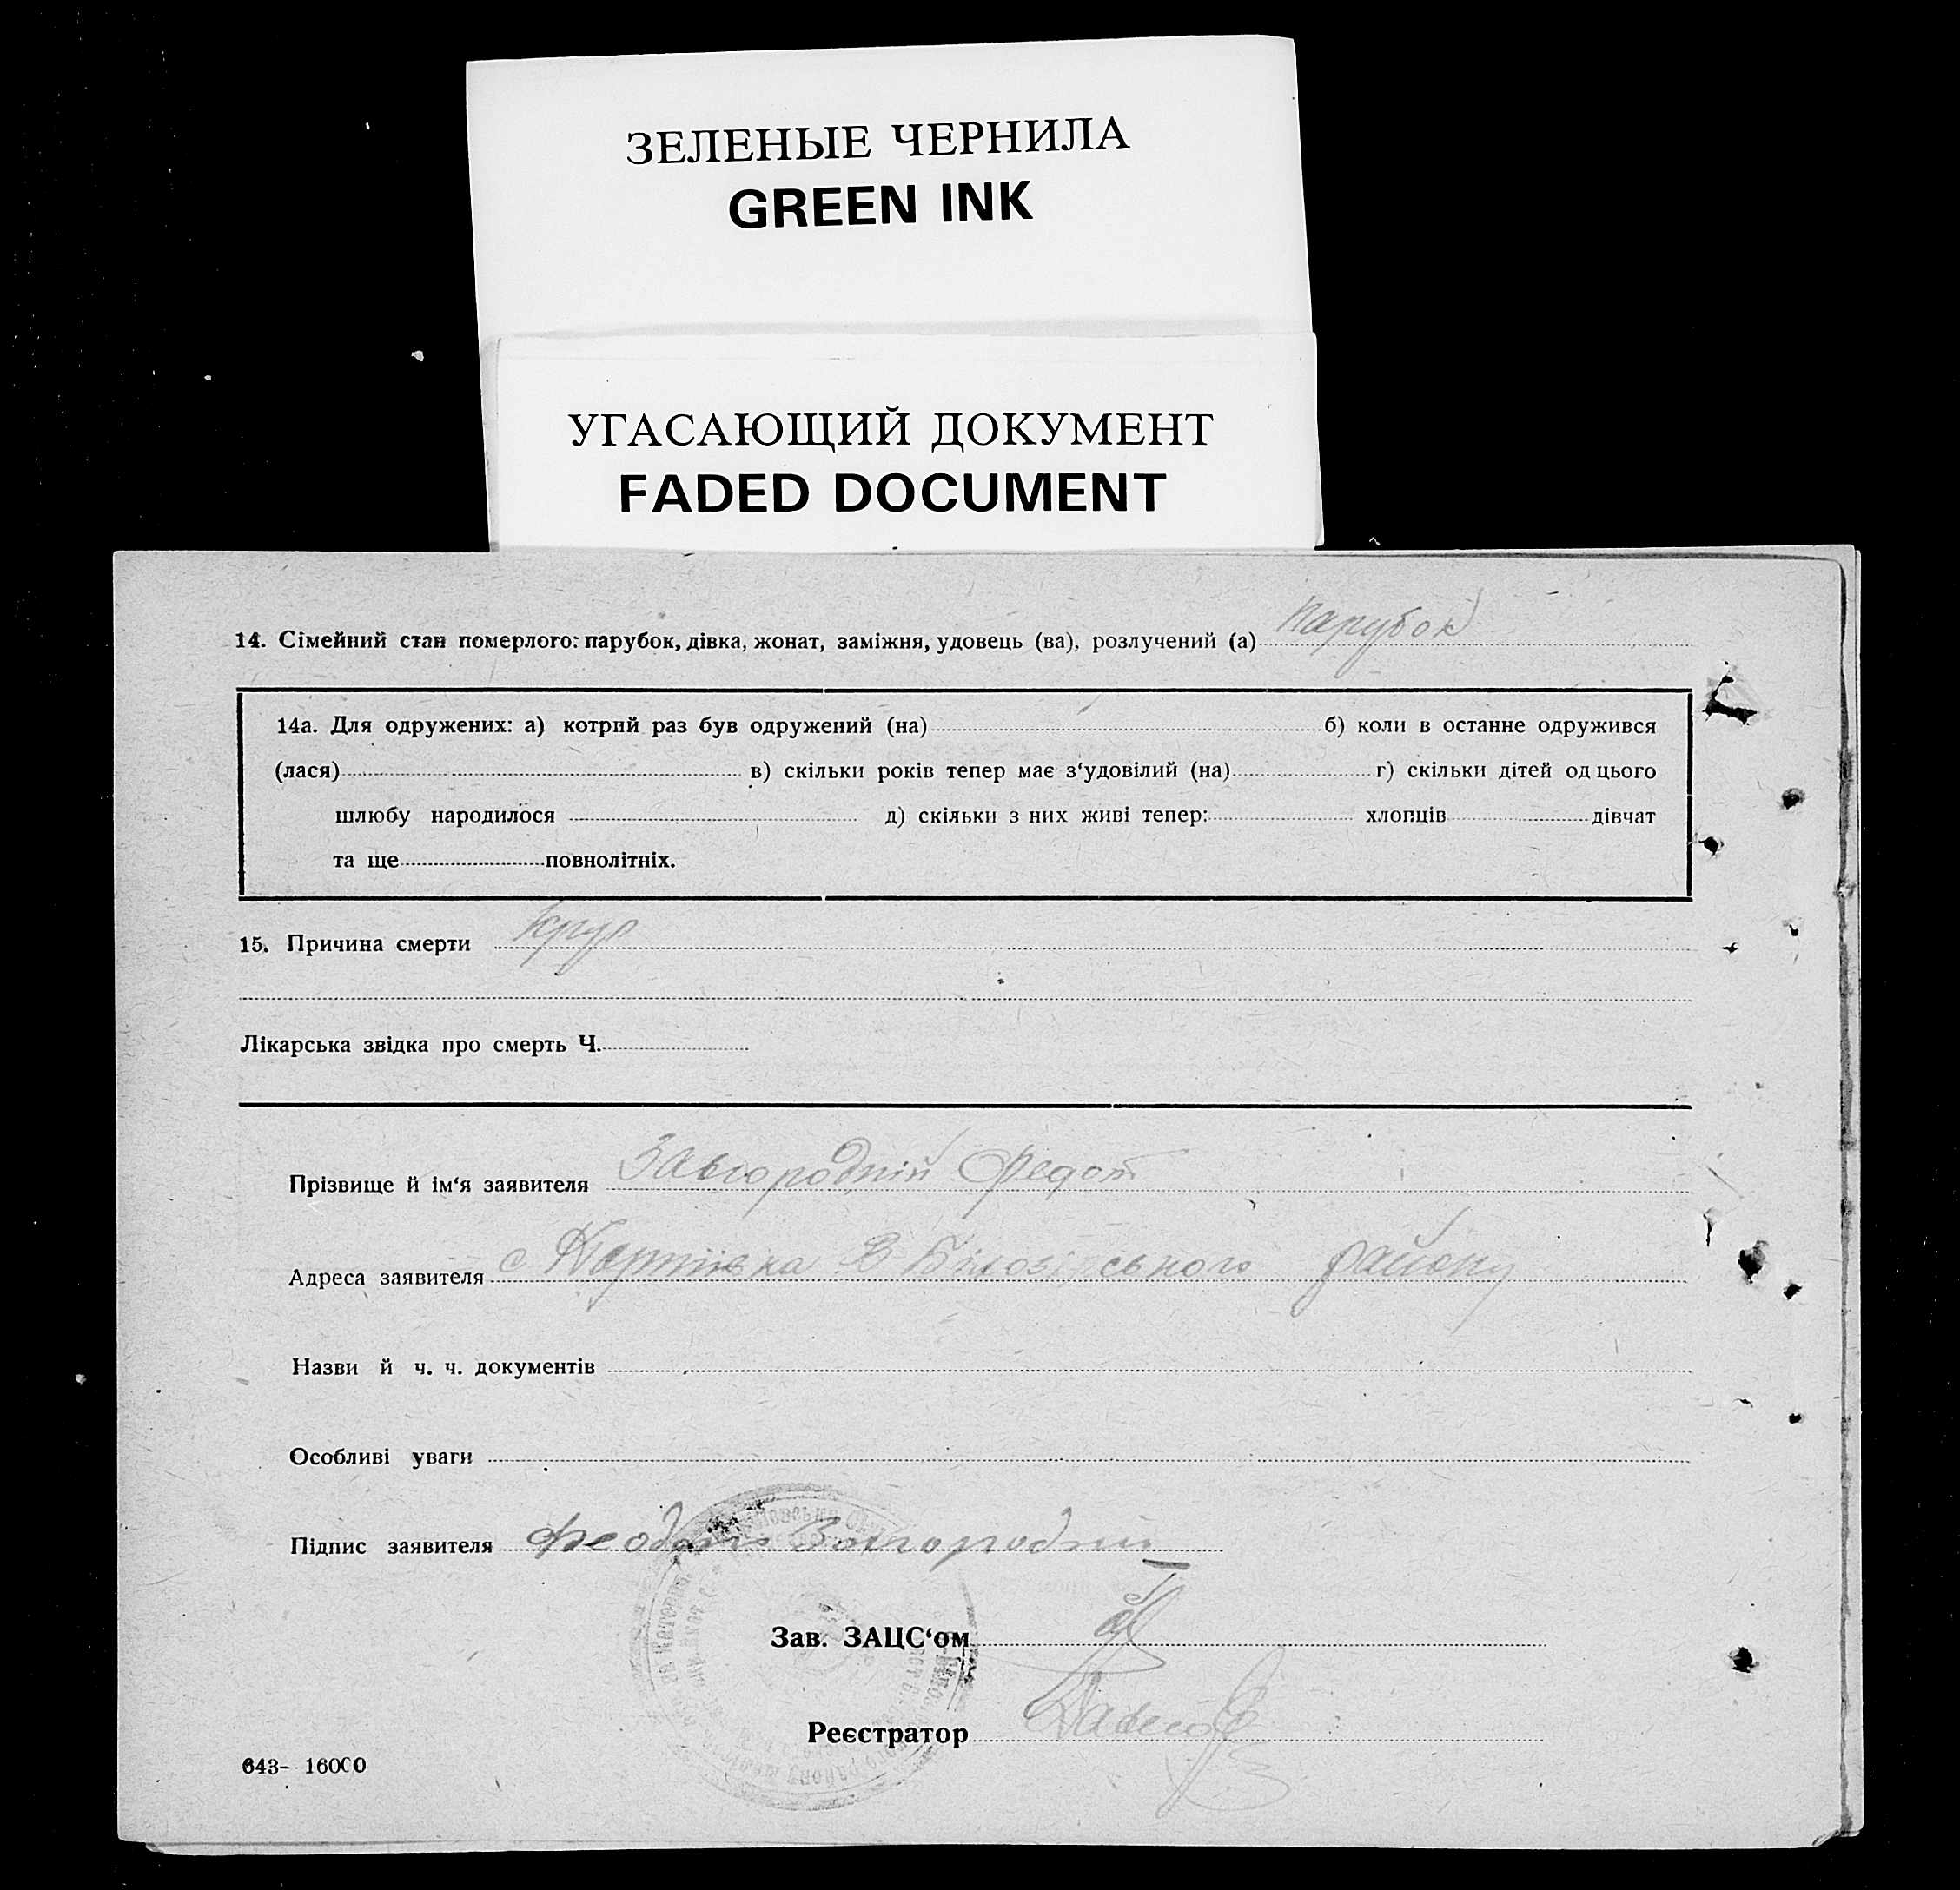 ЗЕЛЕНЫЕ ЧЕРНИЛА
GREEN INK
УГАСАЮЩИЙ ДОКУМЕНТ
FADED DOCUMENT
14. Сімейний стан померлого: парубок, дівка, жонат, заміжня, удовець (ва), розлучений (а) парубок
14а. Для одружених: а) котрий раз був одружений (на) б) коли в останне одружився
(лася) в) скільки років тепер має з‘удовілий (на) г) скільки дітей од цього
шлюбу народилося д) скільки з них живі тепер: хлопців дівчат
та ще повнолітніх.
15. Причина смерти круп
Лікарська звідка про смерть Ч.
Прізвище й ім‘я заявителя Завгородній Федот
Адреса заявителя с В Білозірського району
Назви й ч. ч. документів
Особливі уваги
Підпис заявителя Феодот Завгородний
Зав. ЗАЦС‘ом
Реєстратор
643- 16000